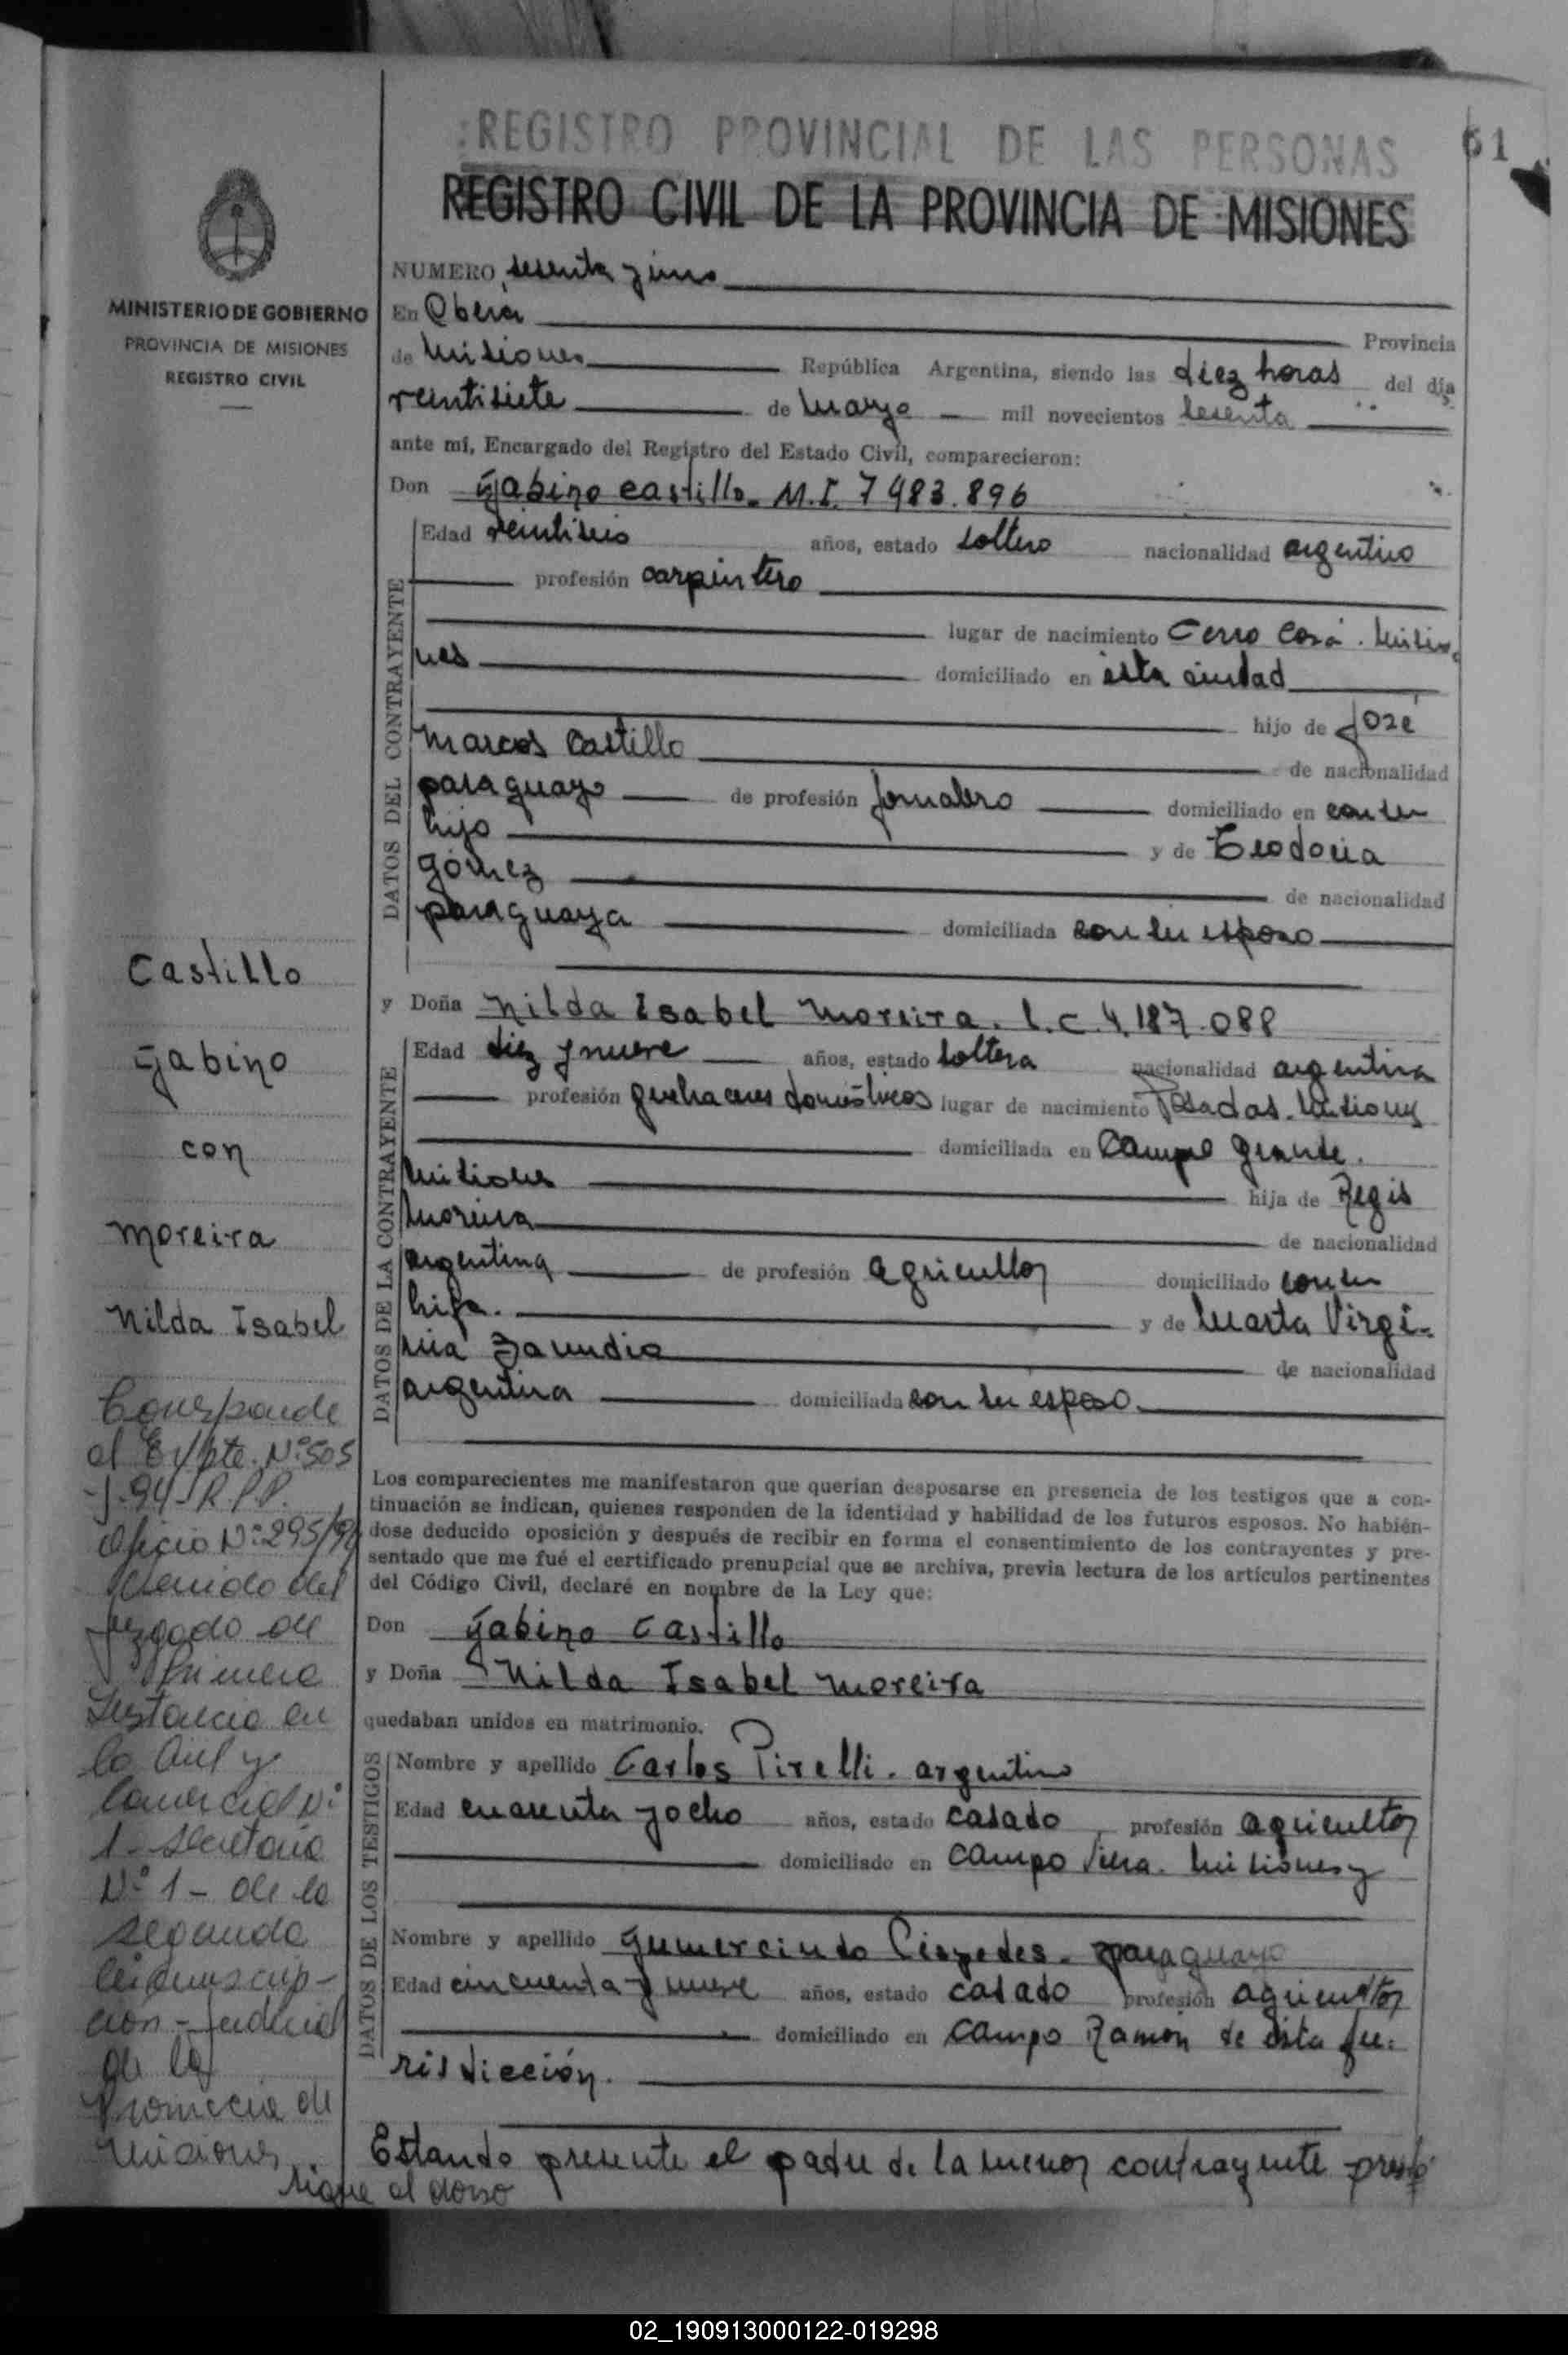 REGISTRO PROVINCIAL DE LAS PERSONAS
61
REGISTRO CIVIL DE LA PROVINCIA DE MISIONES
MINISTERIO DE GOBIERNO
PROVINCIA DE MISIONES
REGISTRO CIVIL
NUMERO sesenta y uno
En Oberá
Provincia
de Misiones República Argentina, siendo las diez horas del día
veintisiete de Mayo mil novecientos sesenta
ante mí, Encargado del Registro del Estado Civil, comparecieron:
Don Gabino Castillo. M.I. 7483.896
DATOS DEL CONTRAYENTE
Edad veintiseis años, estado soltero nacionalidad argentino
profesión carpintero
lugar de nacimiento Cerro Corá. Misio
nes domiciliado en esta ciudad
hijo de José
Marcos Castillo de nacionalidad
paraguayo de profesión jornalero domiciliado en con su
hijo y de Teodoria
Gómez de nacionalidad
paraguaya domiciliada con su esposo
y Doña Nilda Isabel Moreira. L.C. 4.187.088
DATOS DE LA CONTRAYENTE
Edad diez y nueve años, estado soltera nacionalidad argentina
profesión quehaceres domésticos lugar de nacimiento Posadas. Misiones
domiciliada en Campo Grande.
Misiones hija de Regis
Moreira de nacionalidad
argentina de profesión agricultor domiciliado con su
hija. y de Marta Virgi-
nia de nacionalidad
argentina domiciliada con su esposo.
Los comparecientes me manifestaron que querían desposarse en presencia de los testigos que a con-
tinuación se indican, quienes responden de la identidad y habilidad de los futuros esposos. No habién-
dose deducido oposición y después de recibir en forma el consentimiento de los contrayentes y pre-
sentado que me fué el certificado prenupcial que se archiva, previa lectura de los artículos pertinentes
del Código Civil, declaré en nombre de la Ley que:
Don Gabino Castillo
y Doña Nilda Isabel Moreira
quedaban unidos en matrimonio.
DATOS DE LOS TESTIGOS
Nombre y apellido Carlos Pirelli. argentino
Edad cuarenta y ocho años, estado casado, profesión agricultor
domiciliado en Campo Viera. Misiones y
Nombre y apellido Gumercindo Céspedes. paraguayo
Edad cincuenta y nueve años, estado casado profesión agricultor
domiciliado en Campo Ramón de esta ju-
risdicción.
Estando presente el padre de la menor contrayente
Castillo
Gabino
con
Moreira
Nilda Isabel
Corresponde
al Expte. Nº 505
-J-94-R.P.P.
Oficio Nº 295/94
venido del
Juzgado de
Primera
Instancia en
lo Civil y
Comercial Nº
1- Secretaria
Nº 1- de la
Segunda
Circunscrip-
ción-Judicial
de la
Provincia de
Misiones
sigue al dorso
02_190913000122-019298